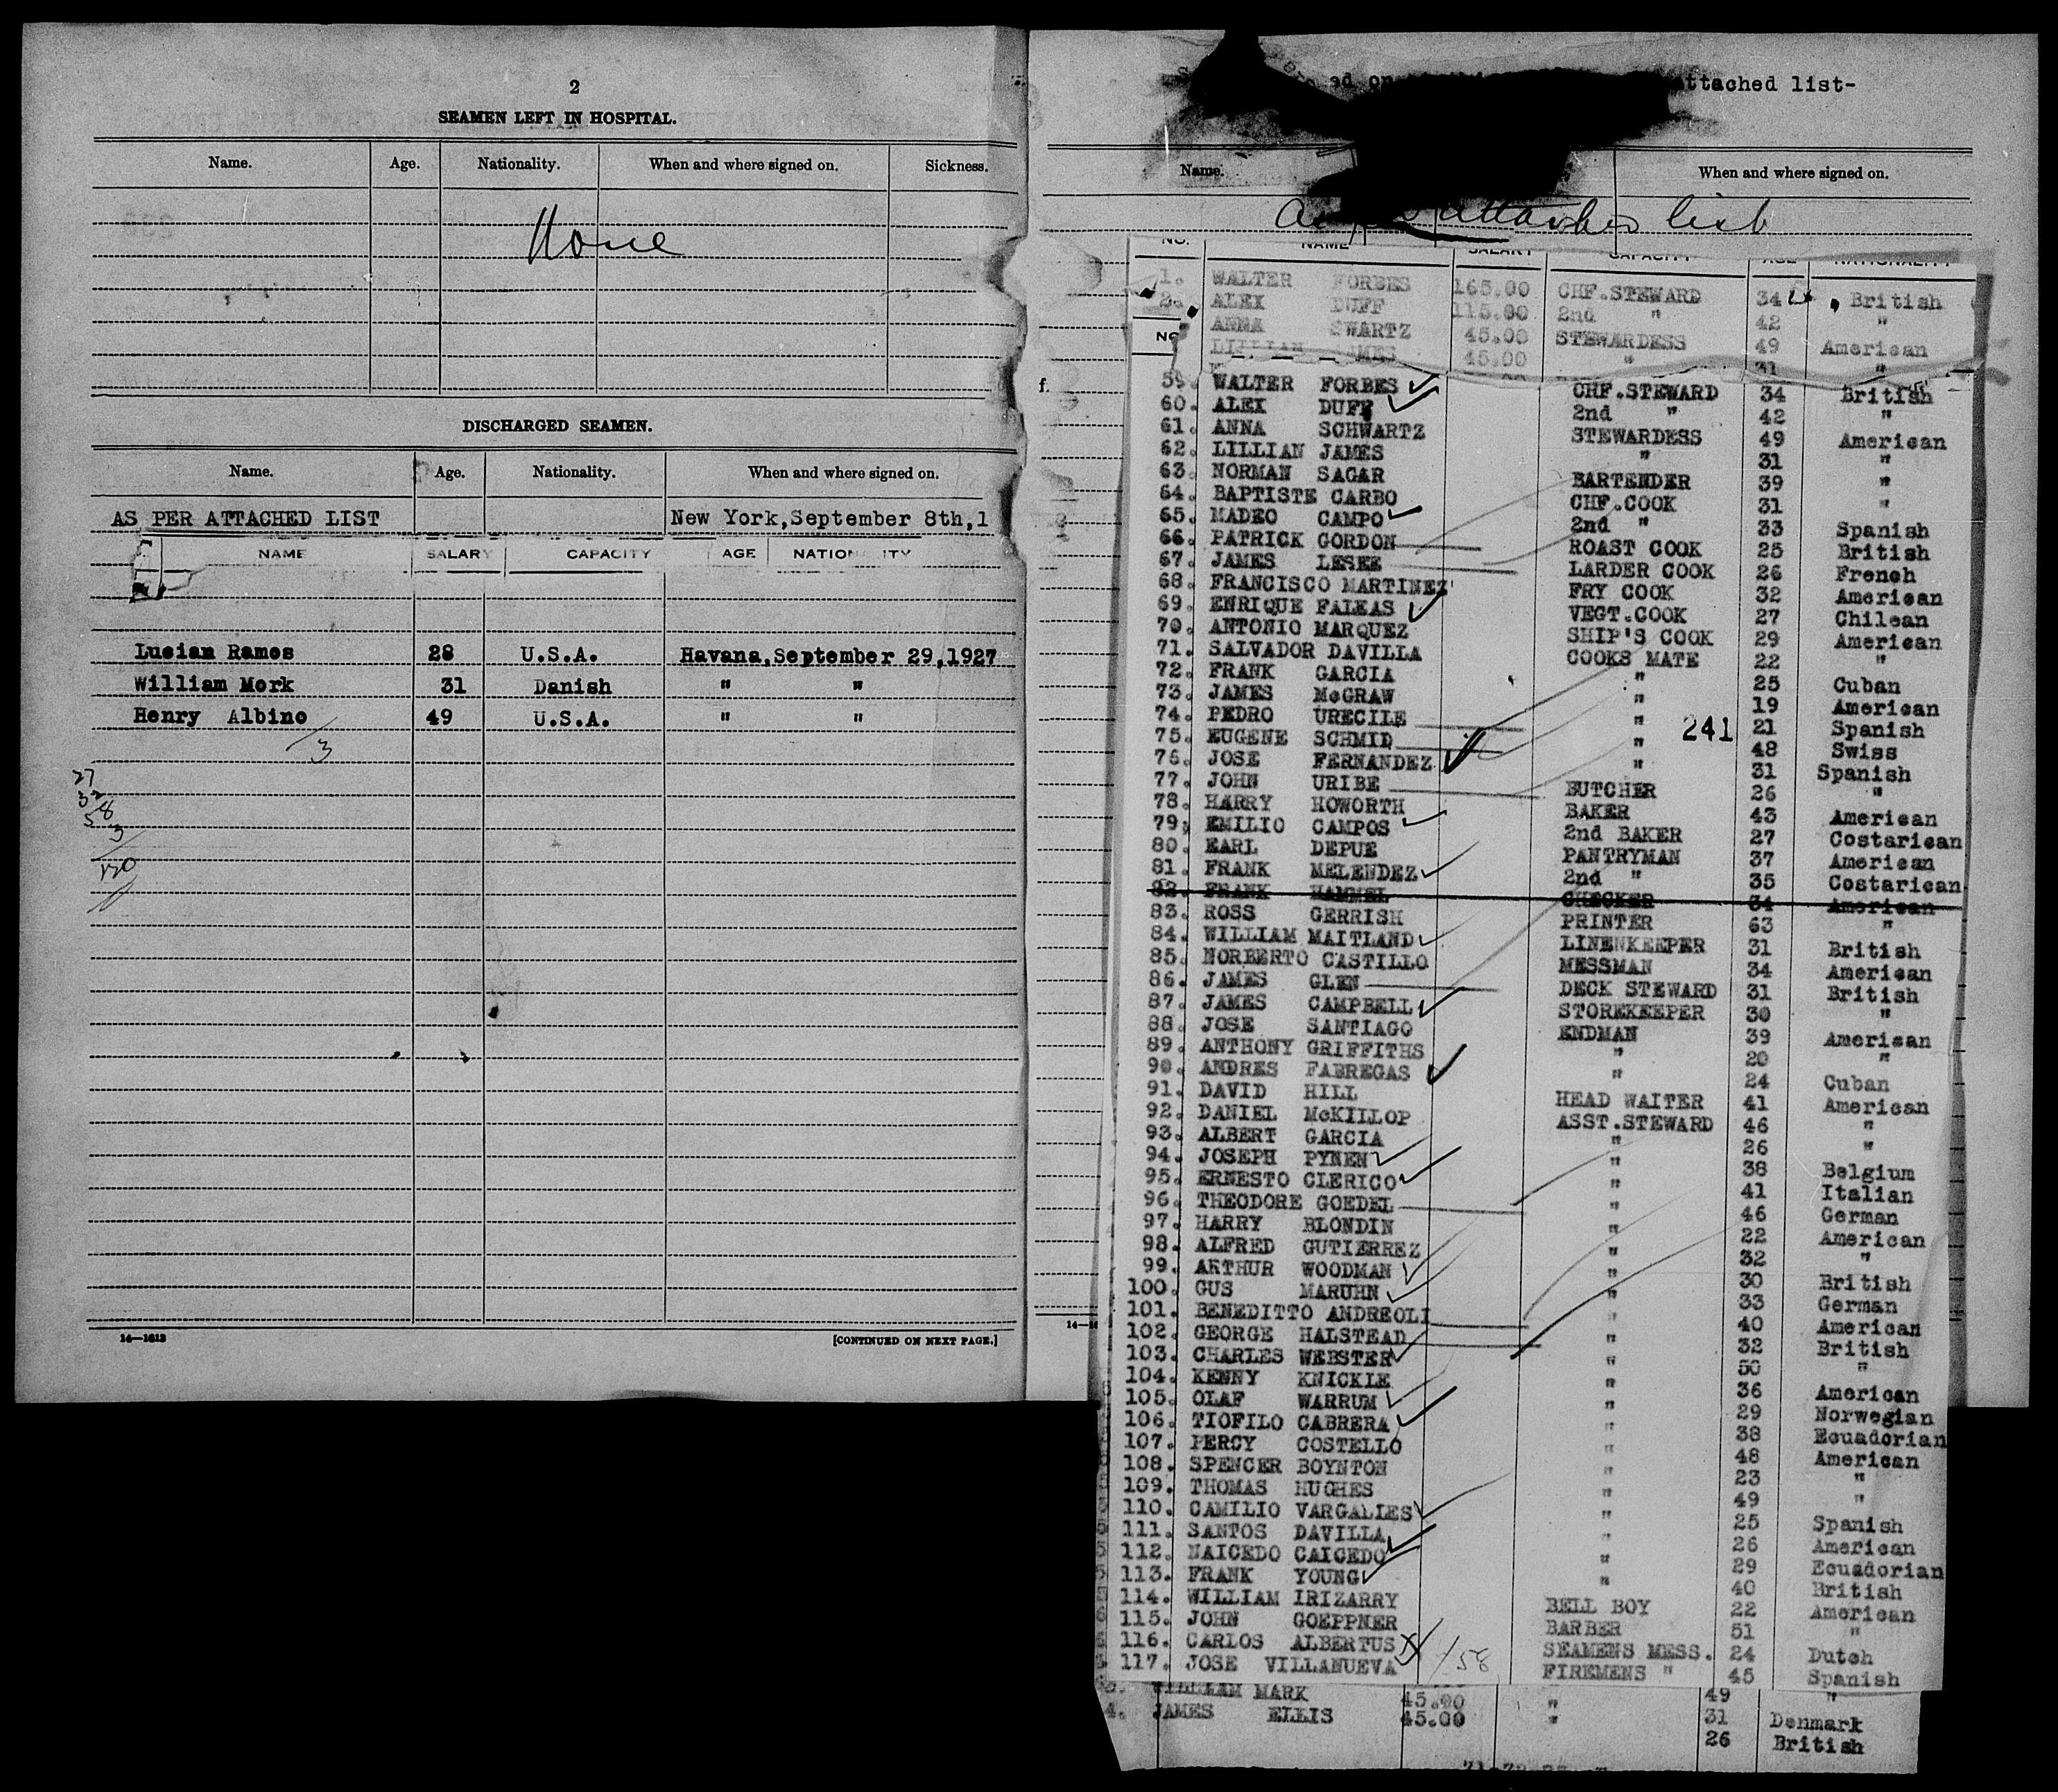 2
SEAMEN LEFT IN HOSPITAL.
Name. Age. Nationality. When and where signed on. Sickness.
None
DISCHARGED SEAMEN.
Name. Age. Nationality. When and where signed on.
AS PER ATTACHED LIST New York,September 8th,1
NAME SALARY CAPACITY AGE
Lucian Ramos 28 U.S.A. Havana,September 29,1927
William Mork 31 Danish " "
Henry Albino 49 U.S.A. " "
3
27
58
3
14—1613
[CONTINUED ON NEXT PAGE.]
attached list-
Name. When and where signed on.
list
NO. NAME SALARY CAPACITY AGE NATIONALITY
1. WALTER FORBES 165.00 CHF.STEWARD 34 British
2. ALEX DUFF 115.00 2nd " 42 "
ANNA SWARTZ 45.00 STEWARDESS 49 American
45.00 " 31 "
f.
59. WALTER FORBES CHF.STEWARD 34 British
60. ALEX DUFF 2nd " 42 "
61. ANNA SCHWARTZ STEWARDESS 49 American
62. LILLIAN JAMES " 31 "
63. NORMAN SAGAR BARTENDER 39 "
64. BAPTISTE CARBO CHF.COOK 31 "
65. MADEO CAMPO 2nd " 33 Spanish
66. PATRICK GORDON ROAST COOK 25 British
67. JAMES LESEE LARDER COOK 26 French
68. FRANCISCO MARTINEZ FRY COOK 32 American
69. ENRIQUE FALEAS VEGT.COOK 27 Chilean
70. ANTONIO MARQUEZ SHIP'S COOK 29 American
71. SALVADOR DAVILLA COOKS MATE 22 "
72. FRANK GARCIA " 25 Cuban
73. JAMES McGRAW " 19 American
74. PEDRO URECILE " 21 Spanish
241
75. EUGENE SCHMID " 48 Swiss
76. JOSE FERNANDEZ " 31 Spanish
77. JOHN URIBE BUTCHER 26 "
78. HARRY HOWORTH BAKER 43 American
79. EMILIO CAMPOS 2nd BAKER 27 Costarican
80. EARL DEPUE PANTRYMAN 37 American
81. FRANK MELENDEZ 2nd " 35 Costarican
82. FRANK HAMMEL CHECKER 34 American
83. ROSS GERRISH PRINTER 63 "
84. WILLIAM MAITLAND LINENKEEPER 31 British
85. NORBERTO CASTILLO MESSMAN 34 American
86. JAMES GLEN DECK STEWARD 31 British
87. JAMES CAMPBELL STOREKEEPER 30 "
88. JOSE SANTIAGO ENDMAN 39 American
89. ANTHONY GRIFFITHS " 20 "
90. ANDRES FABREGAS " 24 Cuban
91. DAVID HILL HEAD WAITER 41 American
92. DANIEL McKILLOP ASST.STEWARD 46 "
93. ALBERT GARCIA " 26 "
94. JOSEPH PYNEN " 38 Belgium
95. ERNESTO CLERICO " 41 Italian
96. THEODORE GOEDEL " 46 German
97. HARRY BLONDIN " 22 American
98. ALFRED GUTIERREZ " 32 "
99. ARTHUR WOODMAN " 30 British
100. GUS MARUHN " 33 German
101. BENEDITTO ANDREOLI " 40 American
102. GEORGE HALSTEAD " 32 British
103. CHARLES WEBSTER " 50 "
104. KENNY KNICKLE " 36 American
105. OLAF WARRUM " 29 Norwegian
106. TIOFILO CABRERA " 38 Ecuadorian
107. PERCY COSTELLO " 48 American
108. SPENCER BOYNTON " 23 "
109. THOMAS HUGHES " 49 "
110. CAMILIO VARGALIES " 25 Spanish
111. SANTOS DAVILLA " 26 American
112. NAICEDO CAICEDO " 29 Ecuadorian
113. FRANK YOUNG " 40 British
114. WILLIAM IRIZARRY BELL BOY 22 American
115. JOHN GOEPPNER BARBER 51 "
116. CARLOS ALBERTUS SEAMENS MESS. 24 Dutch
117. JOSE VILLANUEVA FIREMENS " 45 Spanish
58
WILLIAM MARK 45.00 " 49 "
4. JAMES ELLIS 45.00 " 31 Denmark
26 British